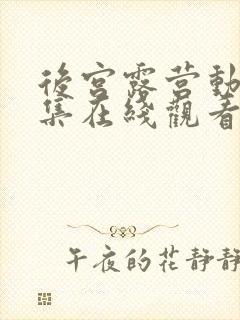 後宮露营動
集在綫觀看
午夜的花静静